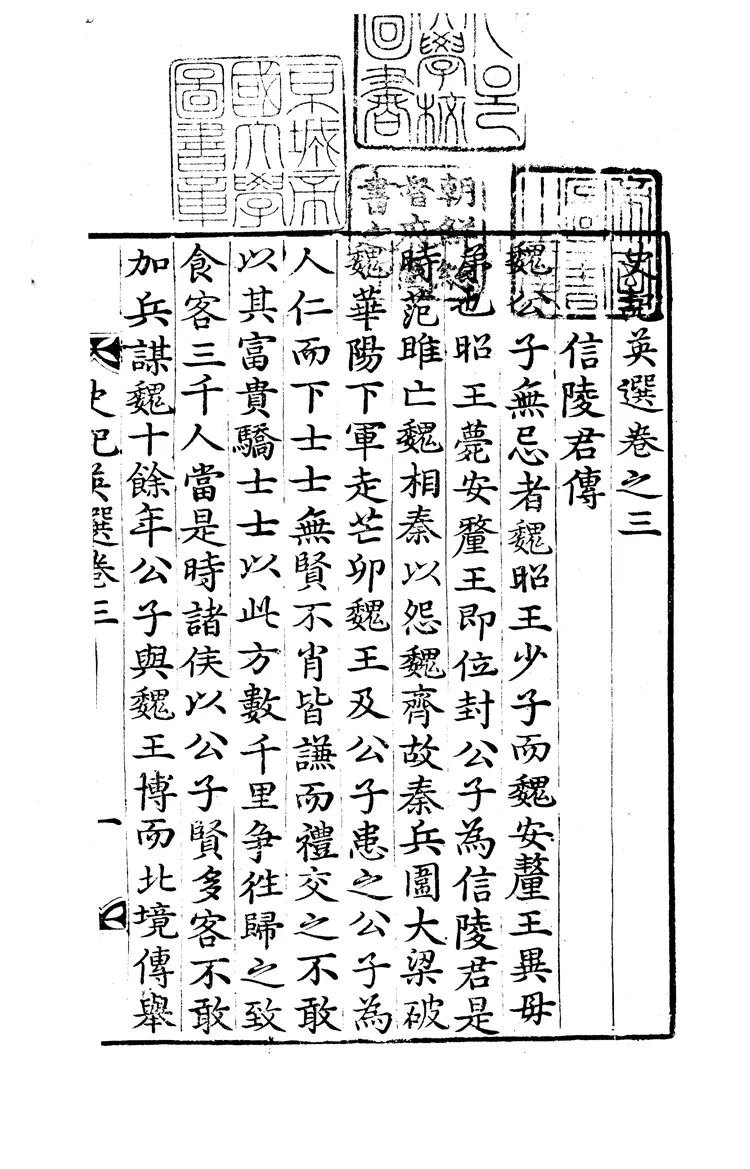 史記英選卷之三
信陵君傳
魏公子無忌者魏昭王少子而魏安釐王異毋
弟也昭王薨安釐王即位封公子為信陵君是
時范雎亡魏相秦以怨魏齊故秦兵圍大梁破
魏華陽下軍走芒卯魏王及公子患之公子為
人仁而下士士無賢不肖皆謙而禮交之不敢
以其富貴驕士士以此方數千里争徃歸之致
食客三千人當是時諸侯以公子賢多客不敢
加兵謀魏十餘年公子與魏王博而北境傳舉
史記英選卷三
一
京城帝
國大學
圖書章
朝鮮總
督府圖
書之